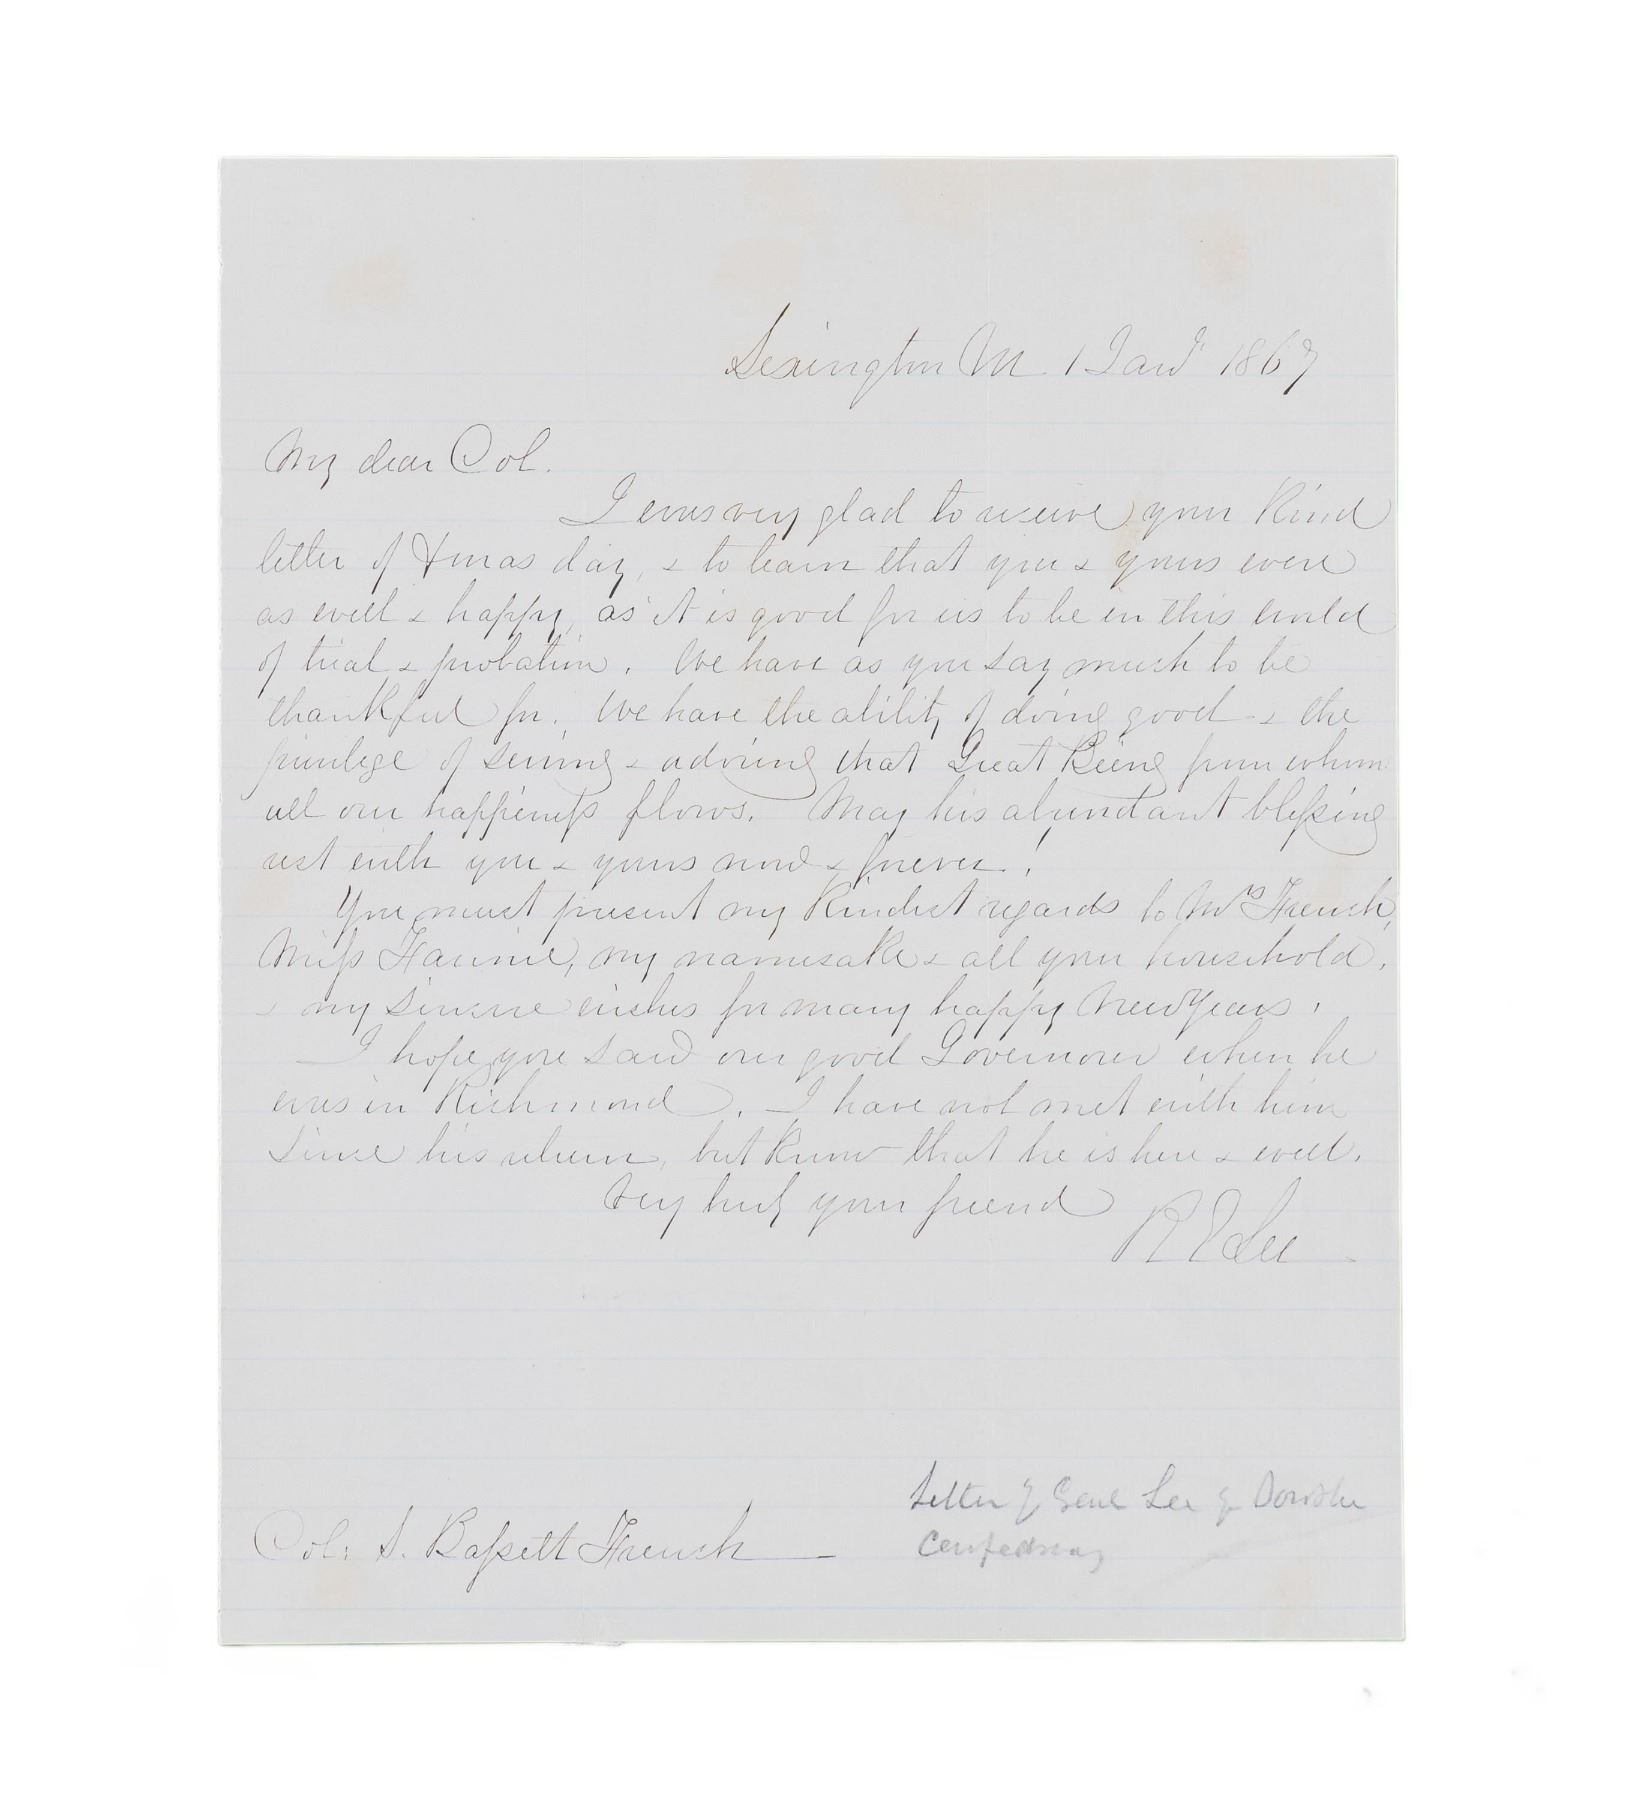 Lexington Va 1 Jany 1867
My dear Col.
I was very glad to receive your kind
letter of Xmas day, & to learn that you & yours were
as well & happy, as it is good for us to be in this world
of trial & probation. We have as you say much to be
thankful for. We have the ability of doing good & the
privilege of serving & adoring that Great Being from whom
all our happiness flows. May his abundant blessing
rest with you & yours now & forever!
You must present my kindest regards to Mrs French,
Miss Fannie, my namesake & all your household,
& my sincere wishes for many happy New Years.
I hope you saw our good Governour when he
was in Richmond. I have not met with him
since his return, but know that he is here & well.
Very truly your friend
R E Lee
Col: S. Bassett French
Letter of Genl Lee of
Confedracy